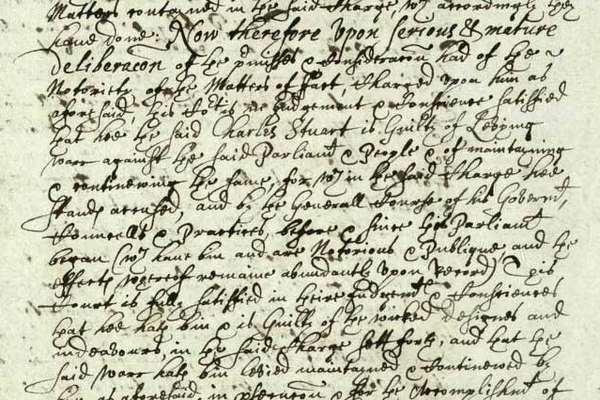 Matters contained in the said Charge wch accordingly they
have done: Now therefore upon serious & mature
deliberacon of the p'misses & Consideracon had of the
Notoriety of the Matters of Fact Charged upon him as
aforesaid, this Cort is in Judgement & Conscience satisfied
that hee the said Charles Stuart is Guilty of Levying
warr against the said Parliamt & People & of maintaining
& continewing the same, for wch in the said Charge hee
stands accused, and by the Generall Course of his Governmt,
Councells & Practices, before & since this Parliamt
began (wch have bin and are Notorious & Publique, and the
effects whereof remaine abundantly upon Record) This
Court is fully satisfied in their Judgemts & Consciences
that hee hath bin & is Guilty of the wicked designes and
indeavours in the said Charge sett forth, and that the
said warr hath bin levied maintained & Continewed by
him as aforesaid, in & for the Accomplishmt of